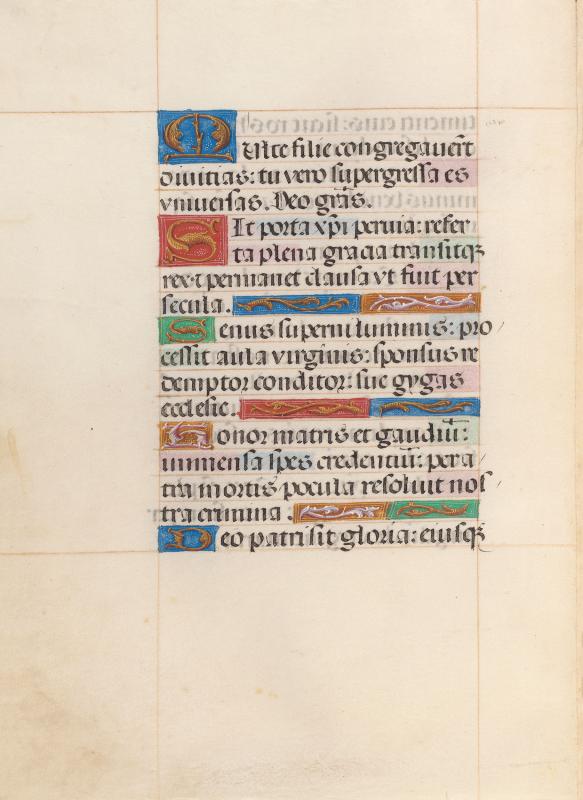 Multe filie congregauer̄t
diuitias: tu vero supergressa es
vniuersas. Deo gr̄as.
Fit porta xp̄i peruia: refer
ta plena gracia transitq̃
rex ⁊ permanet clausa vt fuit per
secula.
Genus superni luminis: pro
cessit aula virginis: sponsus re
demptor conditor: sue gygas
ecclesie.
Honor matris et gaudiū:
immensa spes credentiū: per a
tra mortis pocula resoluit nos
tra crimina.
Deo patri sit gloria: eiusq̃